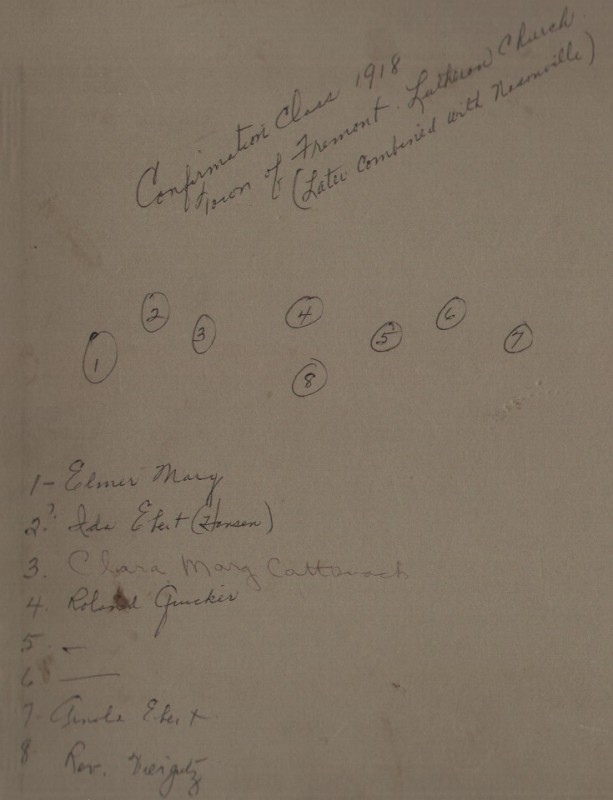 Confirmation Class 1918
Town of Fremont. Lutheran Church
(Later Combined with Nasonville)
2
4
6
3
5
7
1
8
1- Elmer Marg
2.? Ida Ebert (Hansen)
3. Clara Marg Cattanach
4. Roland
5. -
6. —
7- Arnold Ebert
8 Rev. Viergutz